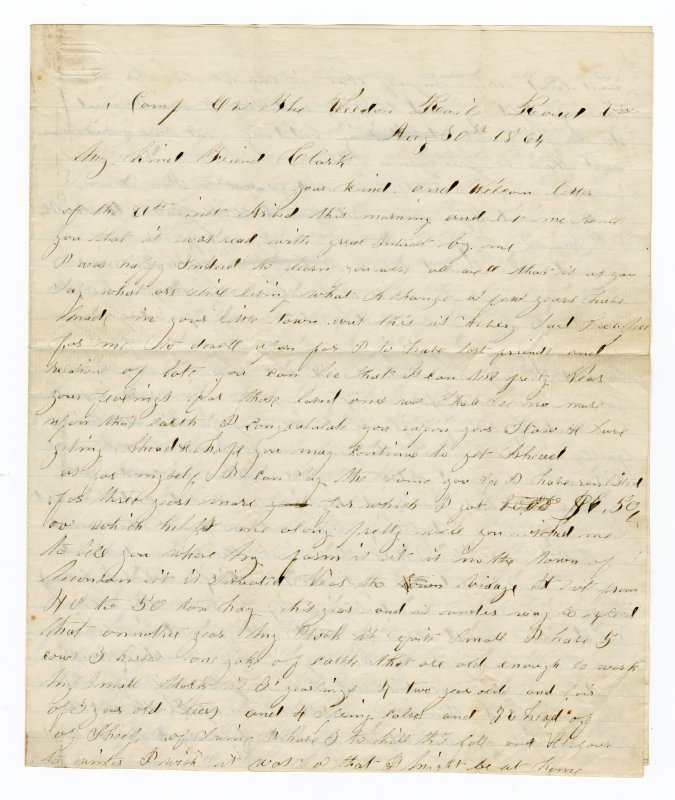 Camp On The Weldon Rail Road Va
Aug 30th 1864
My Kind Friend Clark
your kind and Welcom letter
of the 21st inst this morning and let me
you that it was read with great by me
I was happy Indeed to learn you were all well that is as you
say what are still living what A change a few years have
made in your little town but this is A Sad
for me to dwell upon for I to have lost friends and
relatives of late you can see that I can still
your feelings for those loved ones we shall see no more
upon this earth I congratulate you upon your Slow & Sure
geting Ahead & hope you may Continue to get Ahead
as for myself I can say the same you I have reenlisted
for three years more for which I got
00 which helps me along pretty well you wished me
to tell you where my farm is it is in the town of
it is situated the bridge it cut from
40 to 50 ton hay this year and is under way to
that another year My Stock is quite Small I have 5
cows 3 horses one yoke of cattle that are old enough to work
My Small Stock is 3 yearlings 4 two year old and
of 3 year old Steers and 4 Spring Calves and head of
of Sheep of Swine I have 3 to kill this fall and
to winter I wish it was so that I might be at home